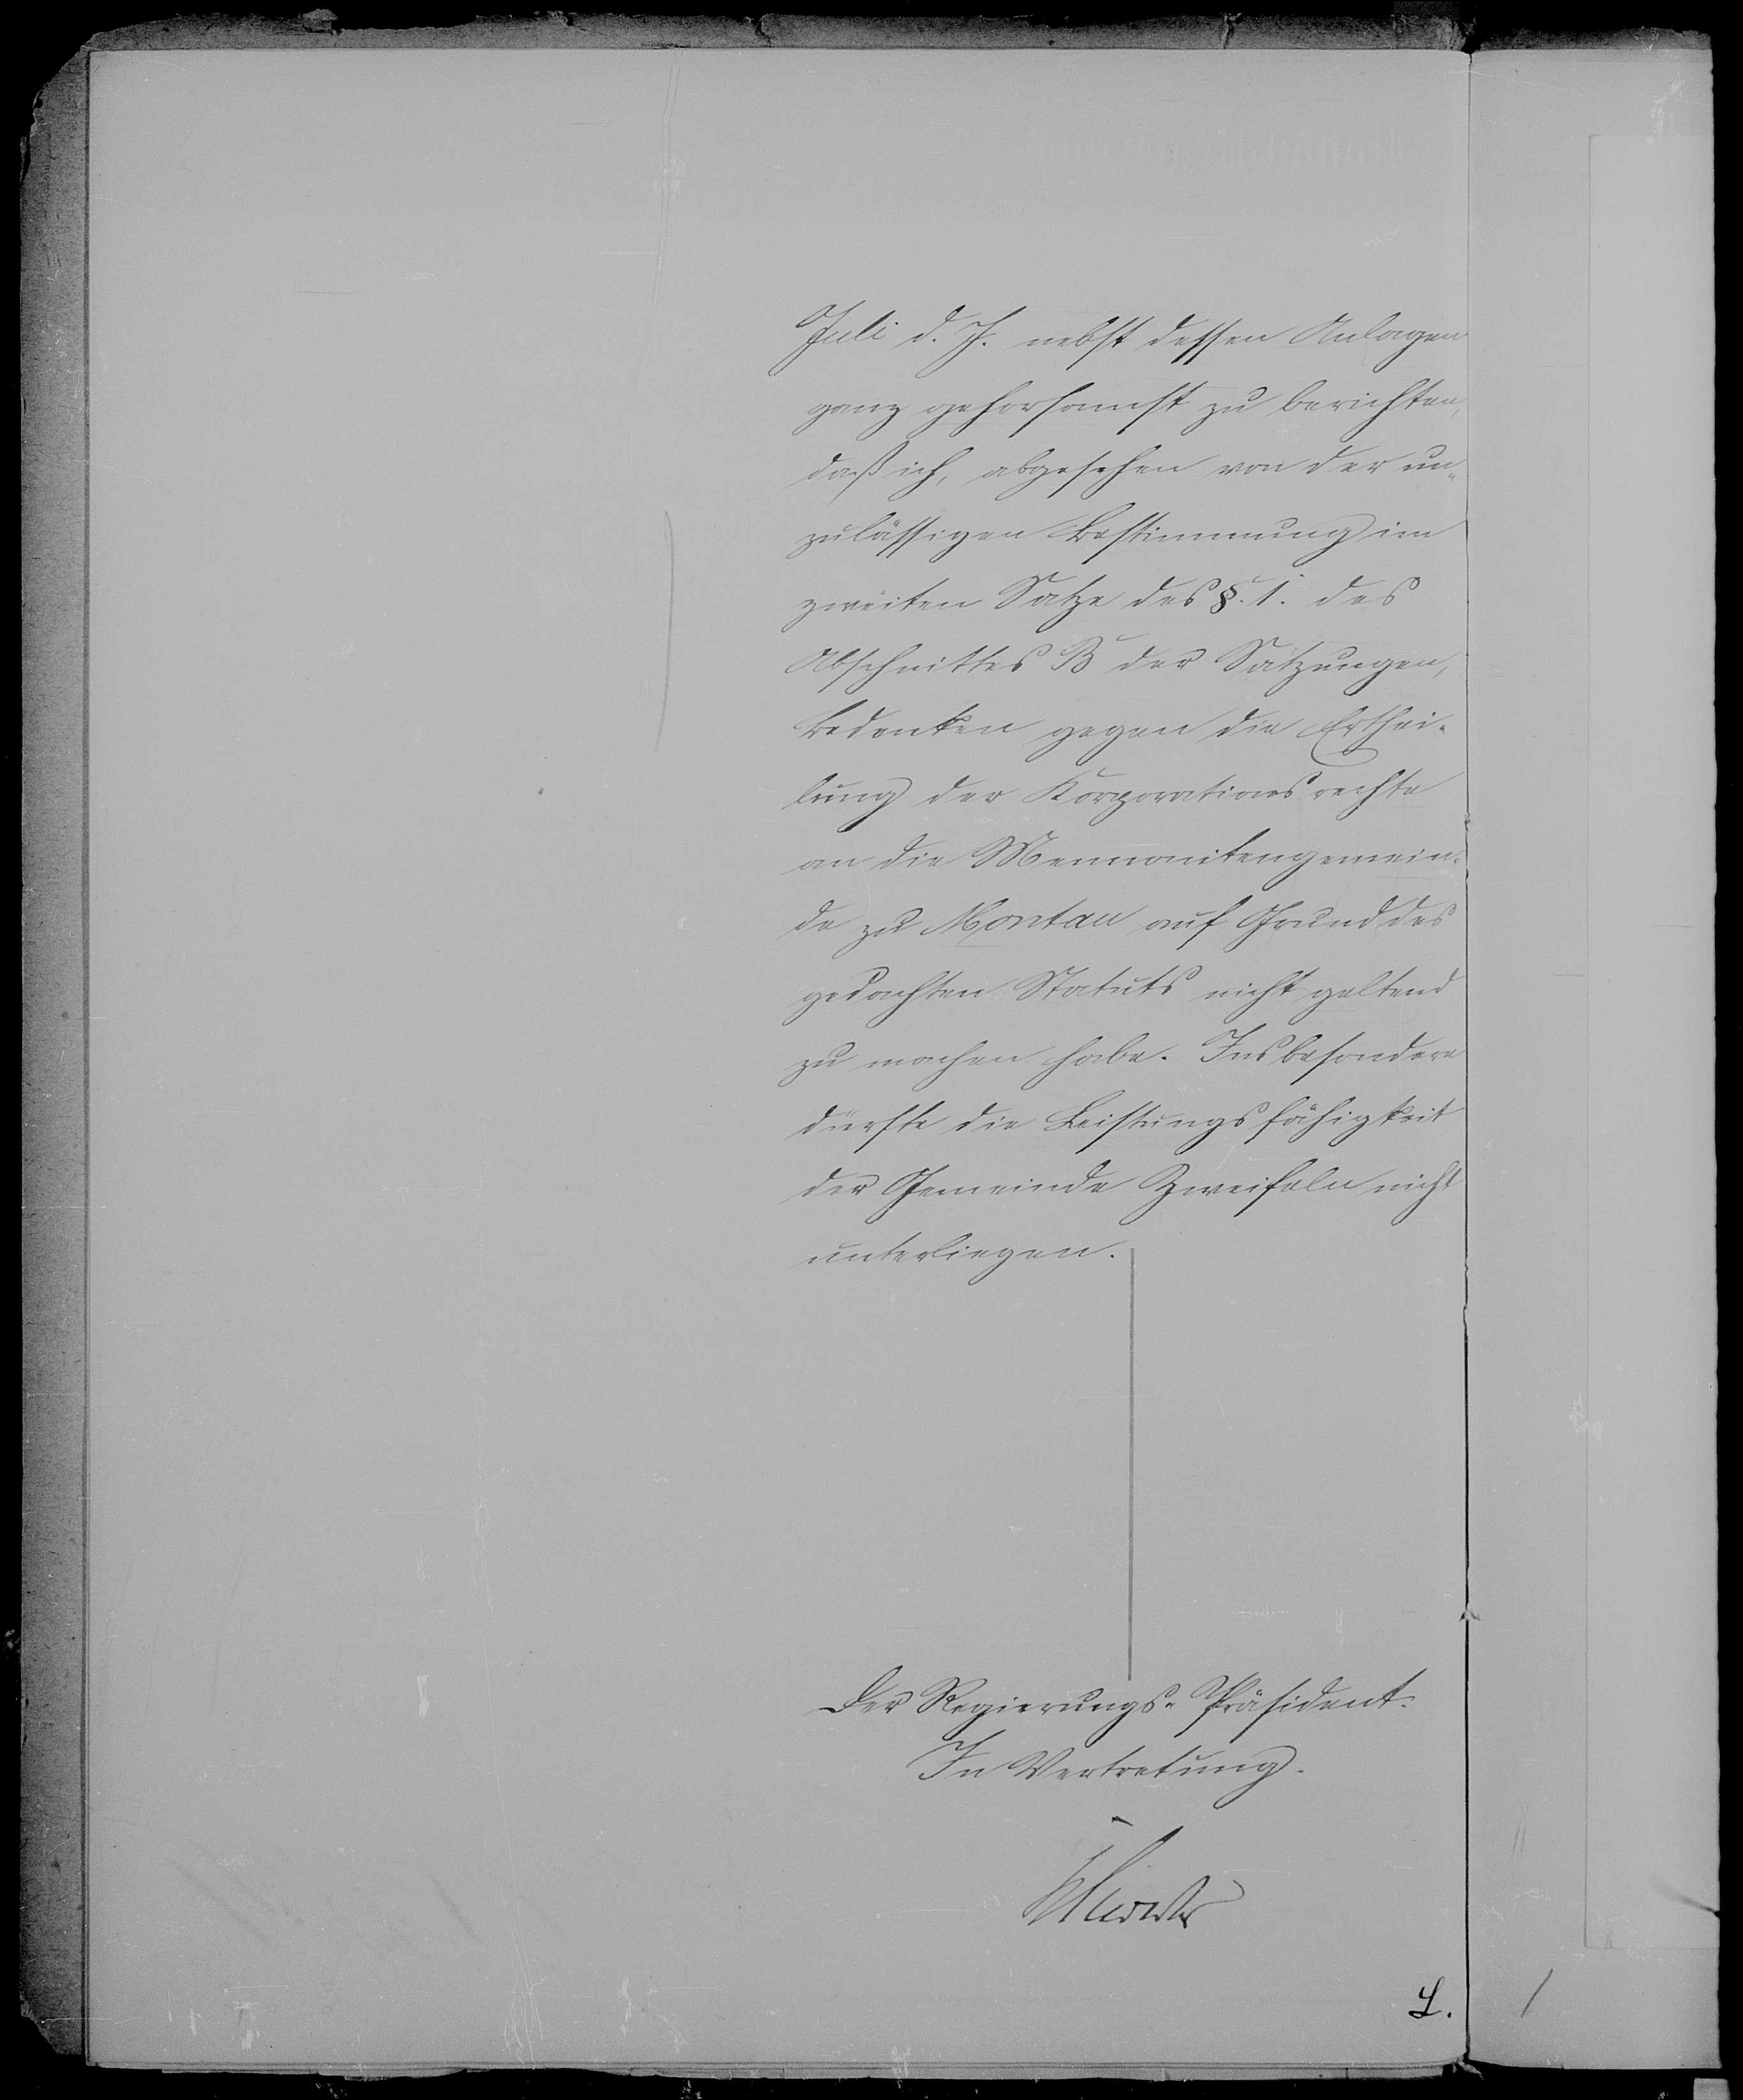 Juli d. J. nebst dessen Anlagen
ganz gehorsamst zu berichten,
daß ich, abgesehen von der un-
zulässigen Bestimmung im
zweiten Satze des §. 1. des
Abschnittes B der Satzungen,
Bedenken gegen die Erthei-
lung der Korporationsrechte
an die Mennonitengemein-
de zu Montau auf Grund des
gedachten Statuts nicht geltend
zu machen habe. Insbesondere
dürfte die Leistungsfähigkeit
der Gemeinde Zweifeln nicht
unterliegen.
Der Regierungs-Präsident.
In Vertretung.